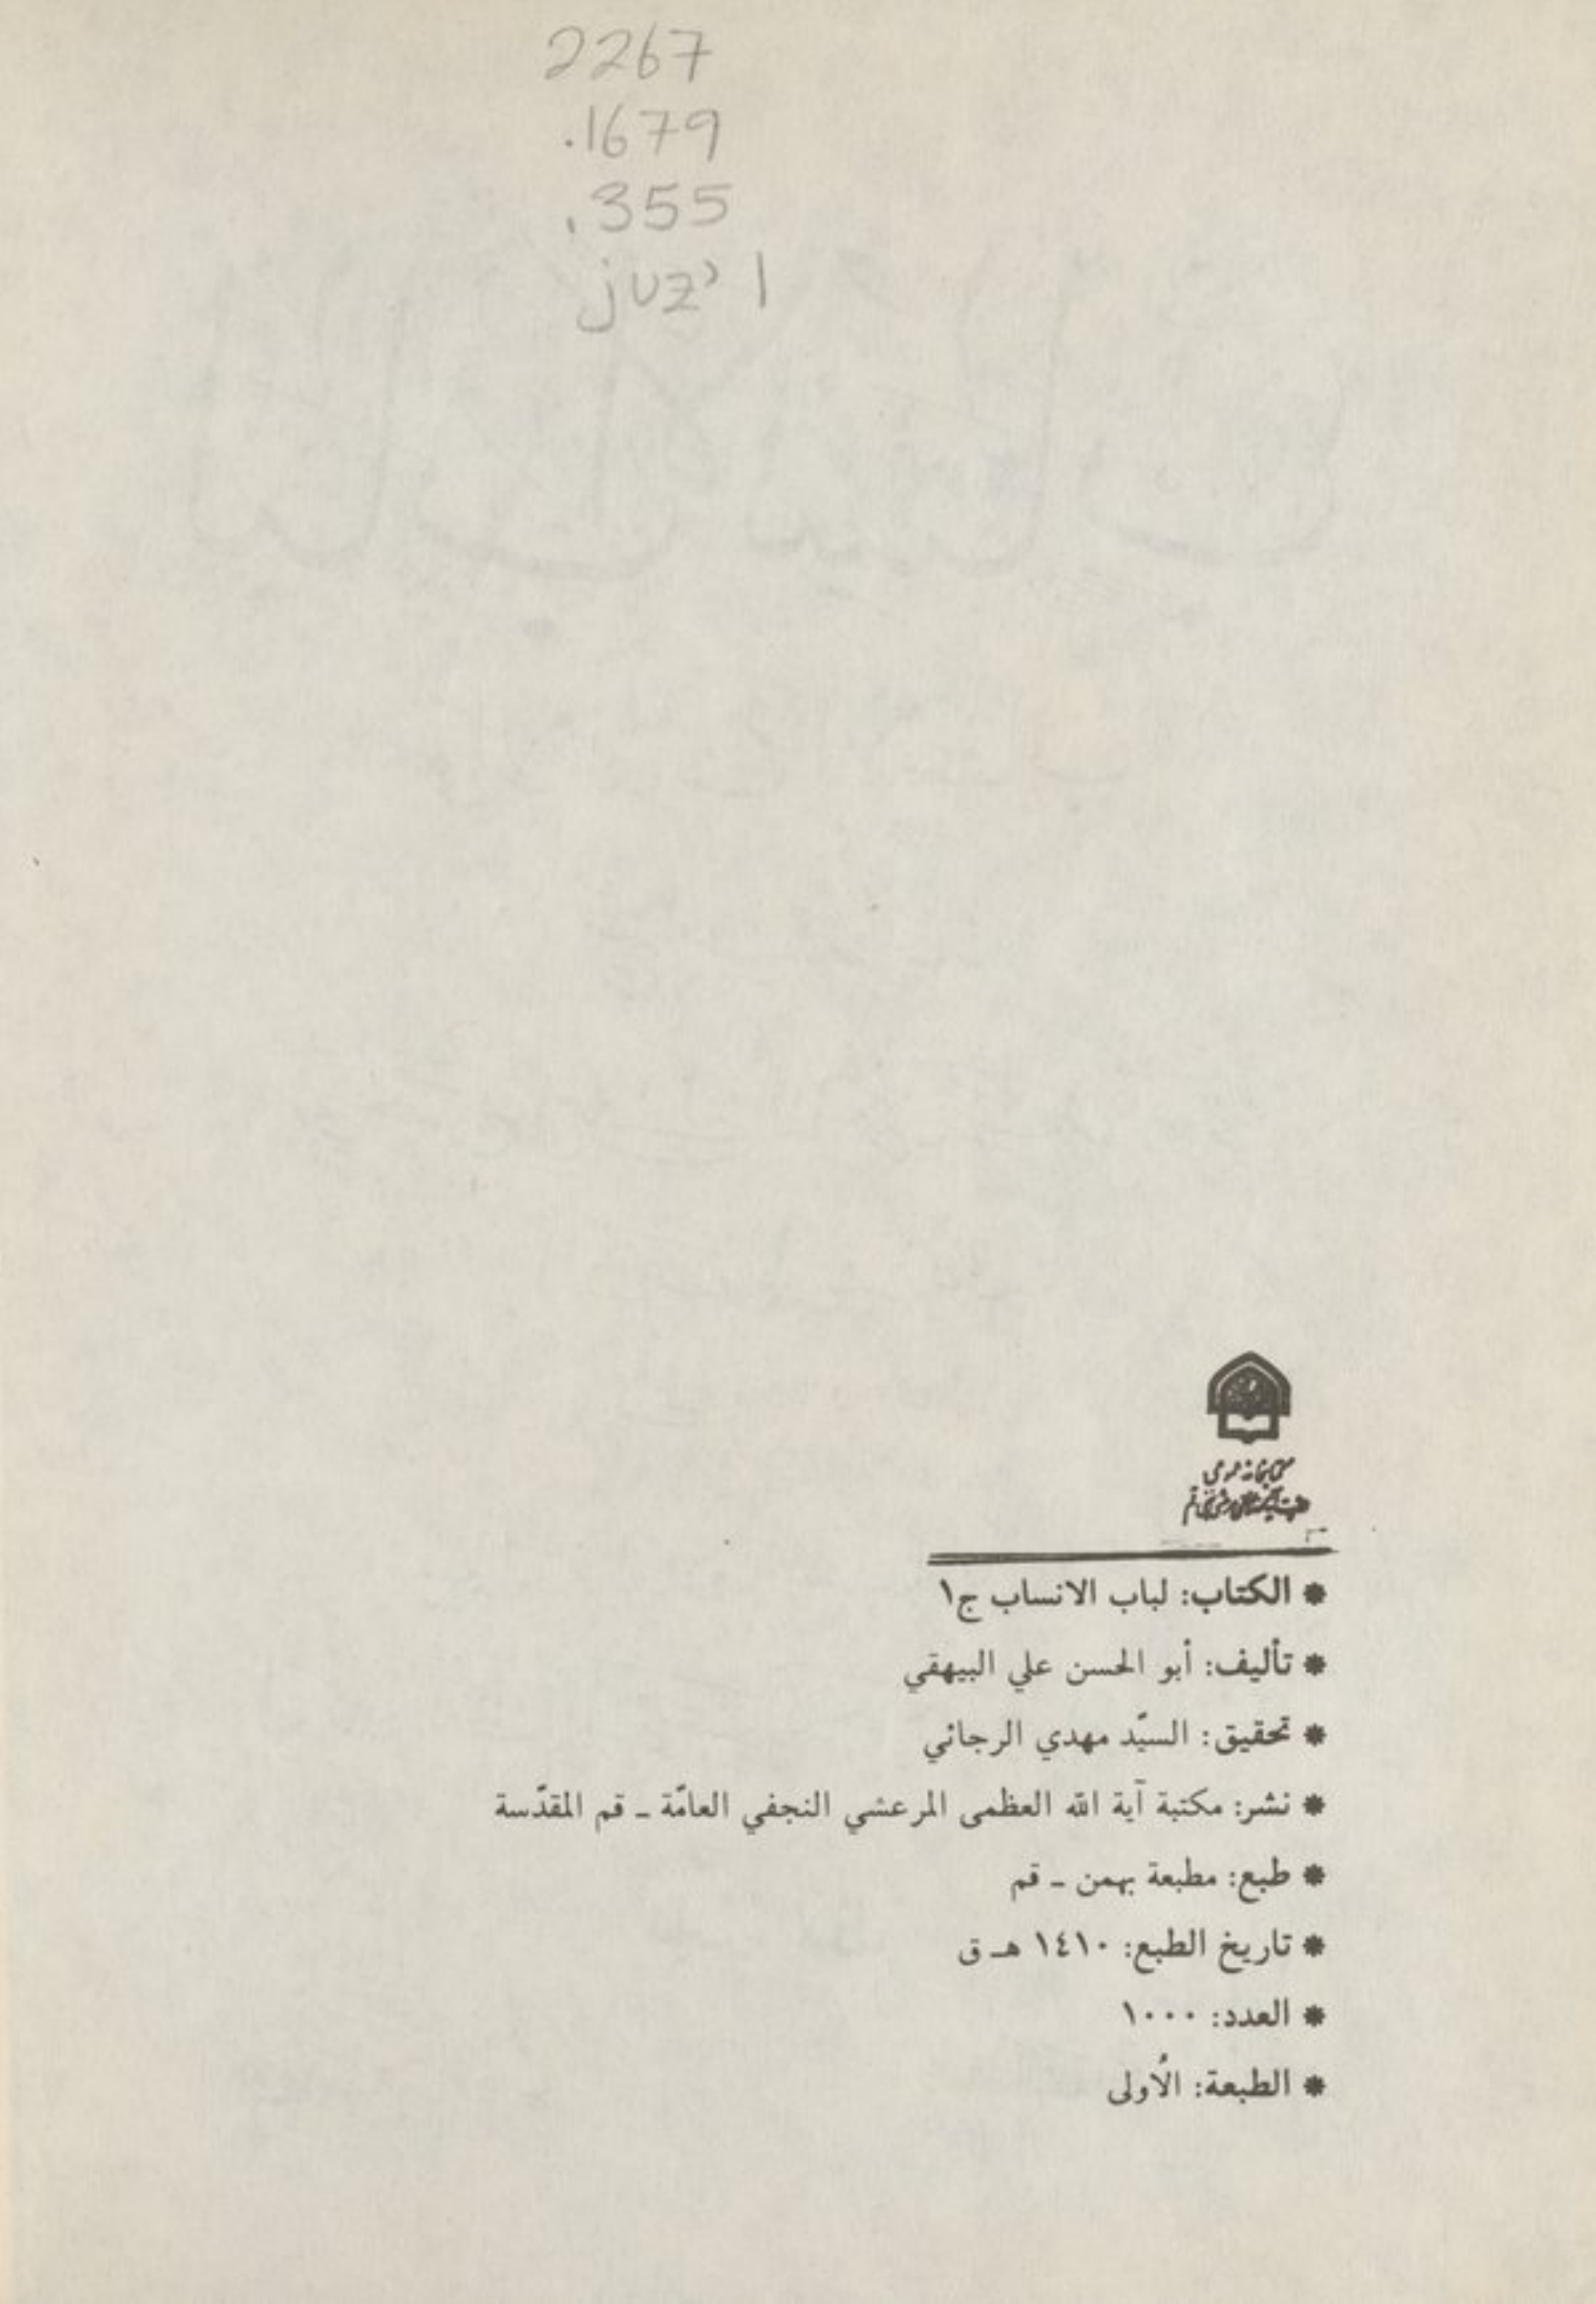 2267
.1679
.355
juz' 1
* الكتاب: لباب الانساب ج١
* تأليف: أبو الحسن علي البيهقي
* تحقيق: السيّد مهدي الرجائي
* نشر: مكتبة آية الله العظمى المرعشي النجفي العامّة ـ قم المقدّسة
* طبع: مطبعة بهمن ـ قم
* تاريخ الطبع: ١٤١٠ هـ ق
* العدد: ١٠٠٠
* الطبعة: الاُولى